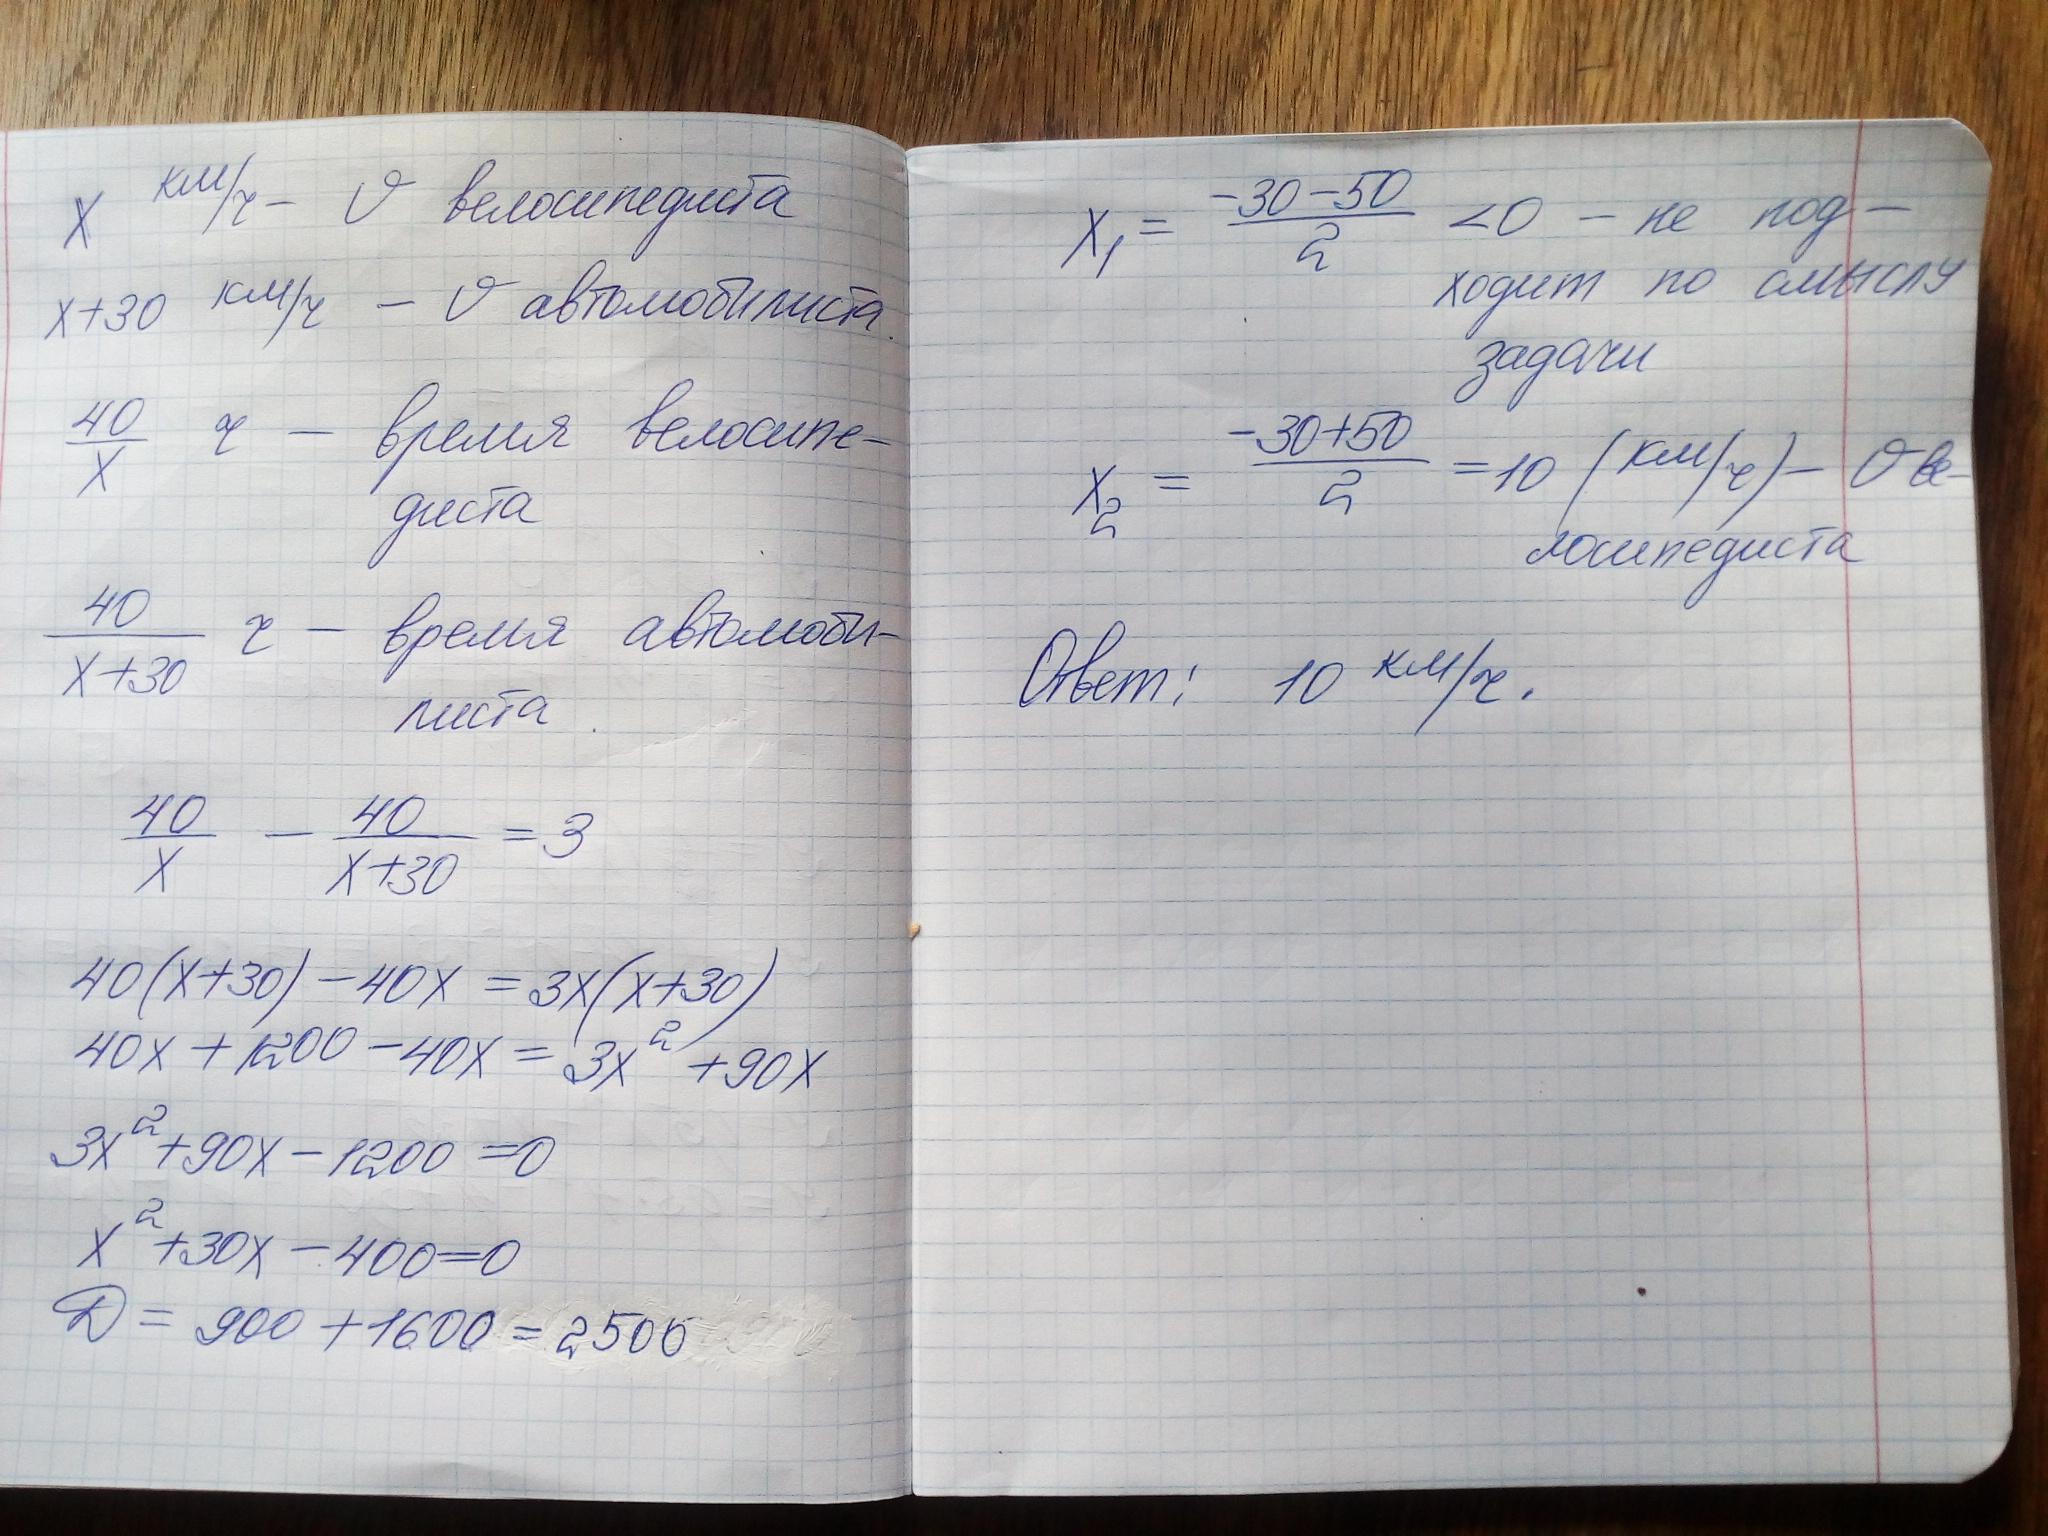 x км/ч – v велосипедиста
x+30 км/ч – v автомобилиста.
40/x ч – время велосипе-
диста
40/(x+30) ч – время автомоби-
листа.
40/x – 40/(x+30) = 3
40(x+30) – 40x = 3x(x+30)
40x + 1200 – 40x = 3x² + 90x
3x² + 90x – 1200 = 0
x² + 30x – 400 = 0
D = 900 + 1600 = 2500
x₁ = (-30 – 50)/2 < 0 – не под-
ходит по смыслу
задачи
x₂ = (-30 + 50)/2 = 10 (км/ч) – v ве-
лосипедиста
Ответ: 10 км/ч.